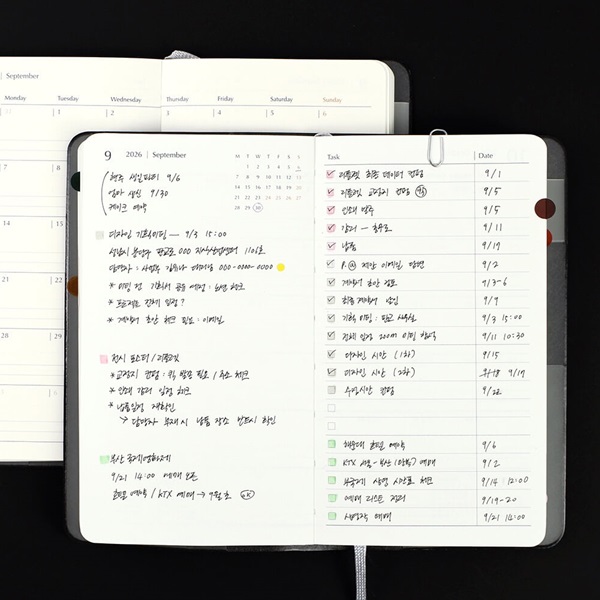 September
Monday Tuesday Wednesday Thursday Friday Saturday Sunday
1 2 3 4 5 6
9 2026 | September
M T W T F S S
1 2 3 4 5 6
7 8 9 10 11 12 13
14 15 16 17 18 19 20
21 22 23 24 25 26 27
28 29 30
현주 생일파티 9/6
엄마 생신 9/30
케이크 예약
디자인 기획미팅 — 9/3 15:00
성남시 분당구 판교로 000 지식산업센터 1101호
담당자: 000-0000-0000
* 미팅 전 기획서 공유 예정
* 전체 일정?
* 계약서 초안 체크 필요: 이메일
전시 포스터 / 리플렛
* 교정지 컨펌: 필요 / 주소 체크
* 인쇄 감리 일정 체크
* 납품일정 재확인
→ 담당자 부재 시 납품 장소 반드시 확인
부산 국제영화제
9/21 14:00 예매 오픈
호텔 예약 / KTX 예매 → 9월 초 OK
Task Date
리플렛 최종 데이터 컨펌 9/1
리플렛 교정지 컨펌 9/5
인쇄 발주 9/5
감리 9/11
납품 9/17
P. 제안 이메일 답변 9/2
계약서 초안 검토 9/3-6
최종 계약서 날인 9/9
기획 미팅: 판교 사무실 9/3 15:00
전체 일정 zoom 미팅 참석 9/11 10:30
디자인 시안 (1차) 9/15
디자인 시안 (2차) 9/17
컨펌 9/22
해운대 호텔 예약 9/6
KTX 서울-부산 (왕복) 예매 9/2
상영 시간표 체크 9/14 12:00
예매 리스트 정리 9/19-20
상영작 예매 9/21 14:00